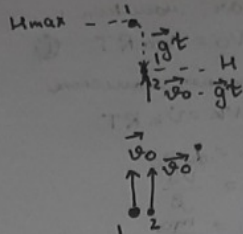 Hmax 1
g⃗t
1 H
2 v⃗₀ - g⃗t
v⃗₀ v⃗₀
1 2